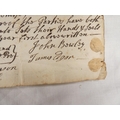 of the Parties have here
unto Sett their Hands & Seals
year First above written
John Bowley
James Dorn